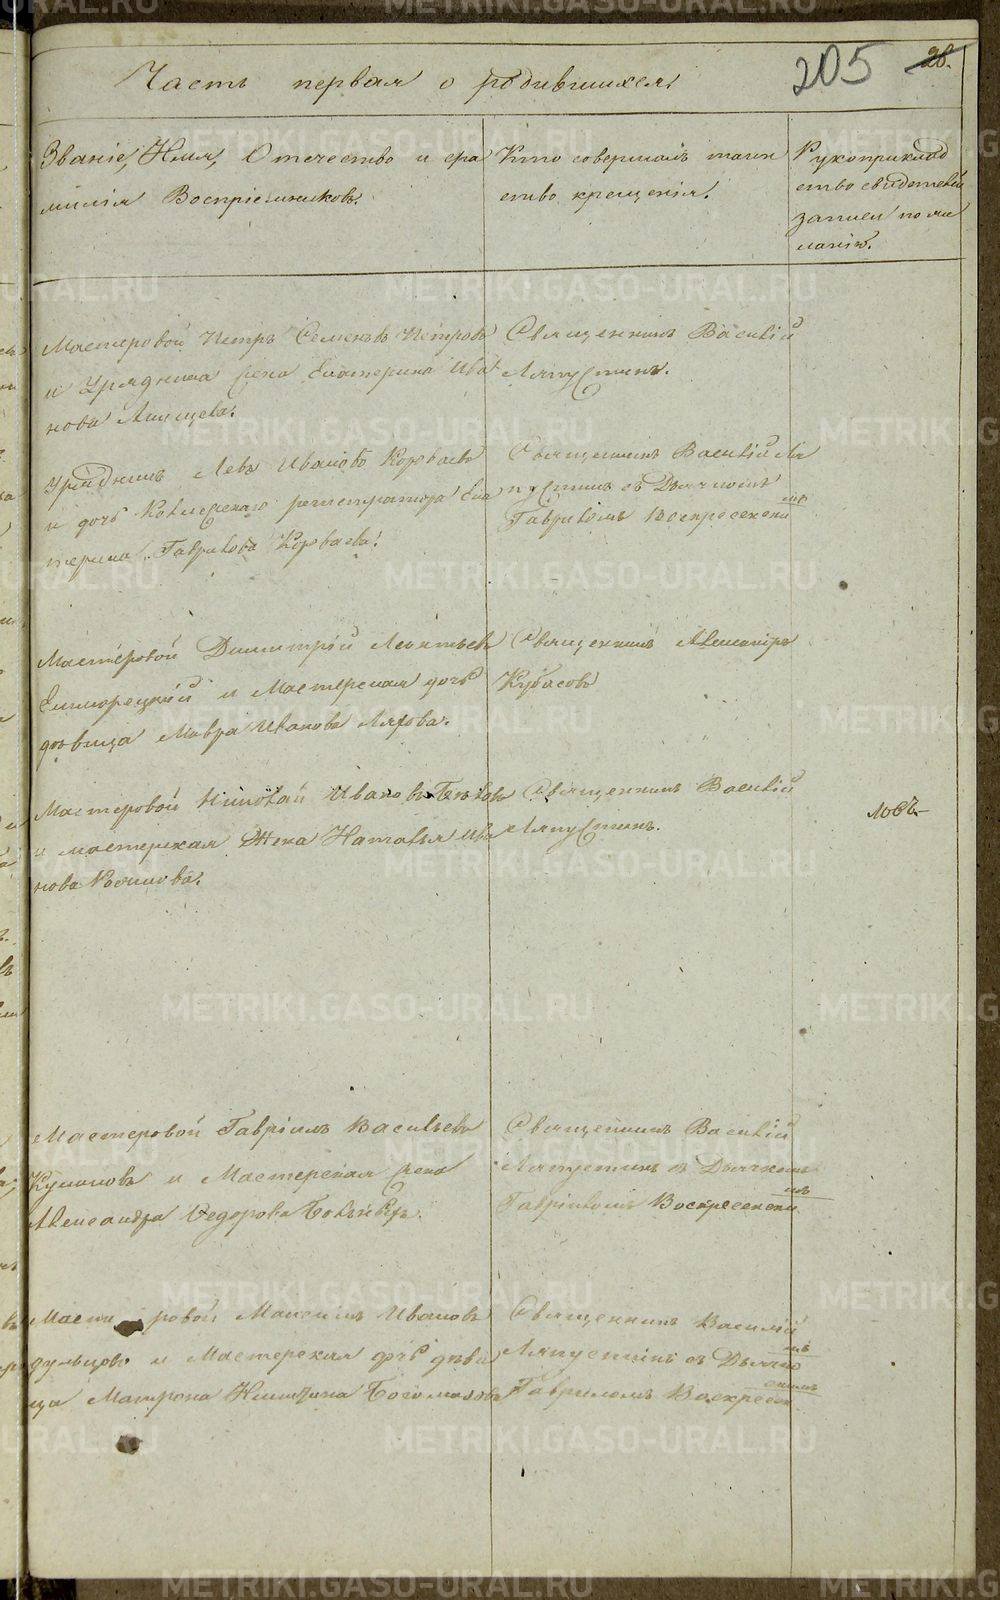 205 28.
Часть первая о родившихся.
Званіе, Имя, Отечество и фа
милія Воспріемниковъ.
Кто совершалъ таин
ство крещенія.
Рукоприклад
ство свидѣтелей
записи по же
ланію.
Мастеровой Петръ Семеновъ Петровъ
и Урядника жена Екатерина Ива
нова
Священникъ Василій
Ляпустинъ.
Урядникъ Левъ Ивановъ Короваевъ
и дочь Коллежскаго регистратора Ека
терина Гаврилова Короваева.
Священникъ Василій Ля
пустинъ съ Дьячкомъ
Гавріиломъ Воскресенски
мъ
Мастеровой Димитрій Леонтьевъ
и Мастерская дочь
дѣвица Мавра Иванова Ляхова.
Священникъ Александръ
Кубасовъ
Мастеровой Николай Ивановъ
и мастерская Жена Наталья Ива
нова
Священникъ Василій
Ляпустинъ.
ловъ
Мастеровой Гавріилъ Васильевъ
Кулаковъ и Мастерская жена
Александра Федорова
Священникъ Василій
Ляпустинъ съ Дьячкомъ
Гавріиломъ Воскресенски
мъ
Мастеровой Максимъ Ивановъ
и Мастерская дочь дѣви
ца Матрона Никитина Богомолова
Священникъ Василій
Ляпустинъ съ Дьячко
мъ
Гавриломъ Воскресен
скимъ
METRIKI.GASO-URAL.RU